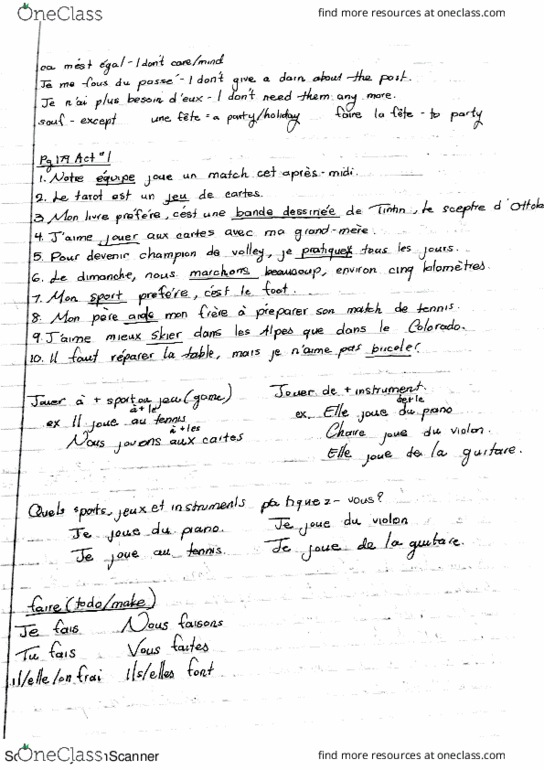 OneClass
find more resources at oneclass.com
ca m'est égal - I don't care/mind
Je me fous du passé - I don't give a damn about the past.
Je n'ai plus besoin d'eux - I don't need them any more.
sauf - except une fête = a party/holiday faire la fête - to party
Pg 179 Act #1
1. Notre équipe joue un match cet après-midi.
2. Le tarot est un jeu de cartes.
3. Mon livre préféré, c'est une bande dessinée de Tintin, le sceptre d'Ottoka
4. J'aime jouer aux cartes avec ma grand-mère.
5. Pour devenir champion de volley, je pratiquex tous les jours.
6. Le dimanche, nous marchons beaucoup, environ cinq kilomètres.
7. Mon sport préféré, c'est le foot.
8. Mon père aide mon frère à préparer son match de tennis.
9. J'aime mieux skier dans les Alpes que dans le Colorado.
10. Il faut réparer la table, mais je n'aime pas bricoler
Jouer à + sport ou jeu (game)
à + le
ex Il joue au tennis
à + les
Nous jouons aux cartes
Jouer de + instrument.
de + le
ex. Elle joue du piano
Claire joue du violon.
Elle joue de la guitare.
Quels sports, jeux et instruments pratiquez-vous?
Je joue du piano. Je joue du violon
Je joue au tennis. Je joue de la guitare.
faire (to do/make)
Je fais Nous faisons
Tu fais Vous faites
il/elle/on frai ils/elles font
OneClass Scanner
find more resources at oneclass.com